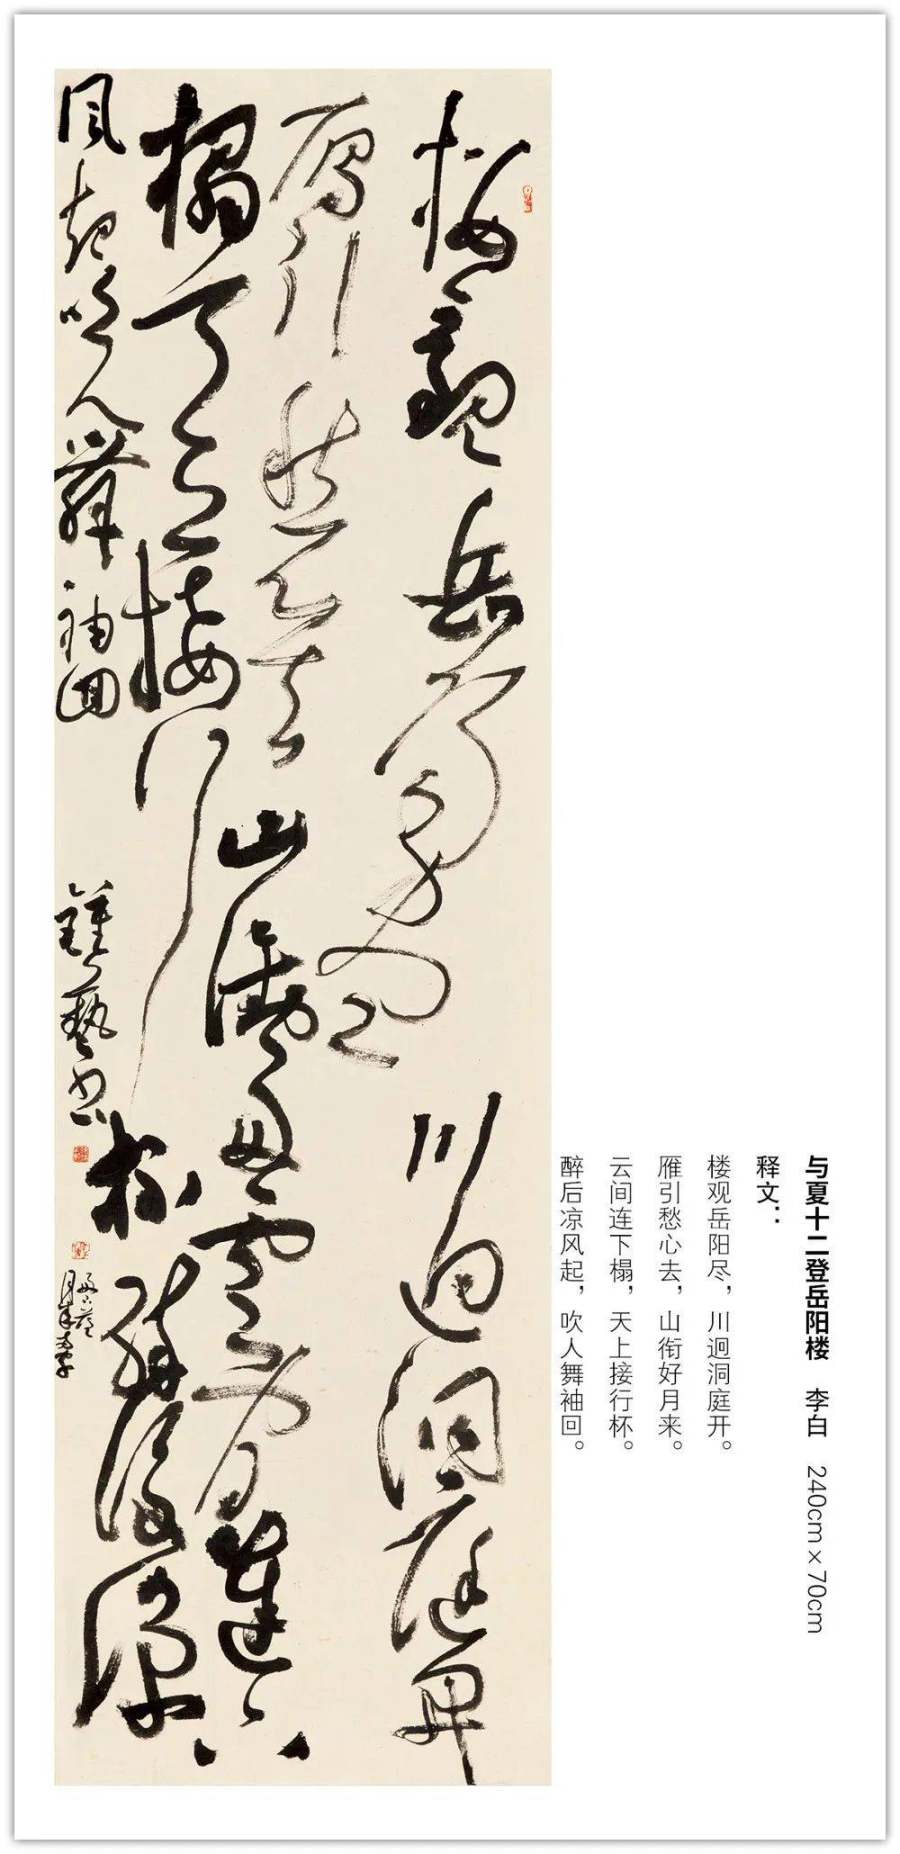 与夏十二登岳阳楼 李白 240cm×70cm
释文：
楼观岳阳尽，川迥洞庭开。
雁引愁心去，山衔好月来。
云间连下榻，天上接行杯。
醉后凉风起，吹人舞袖回。
樓觀岳陽盡川迥洞庭開
雁引愁心去山銜好月來雲間連下
榻天上接行杯醉後涼
風起吹人舞袖回